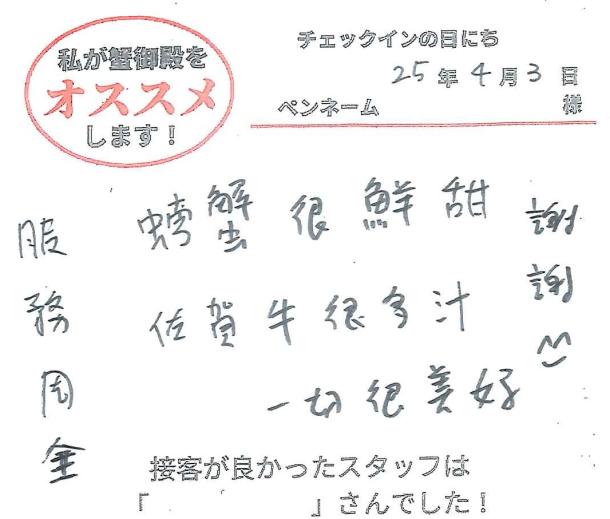 私が蟹御殿を
オススメ
します！
チェックインの日にち
25年4月3日
ペンネーム 様
螃蟹很鮮甜
佐賀牛很多汁
一切很美好
服務周全
謝謝
接客が良かったスタッフは
「 」さんでした！